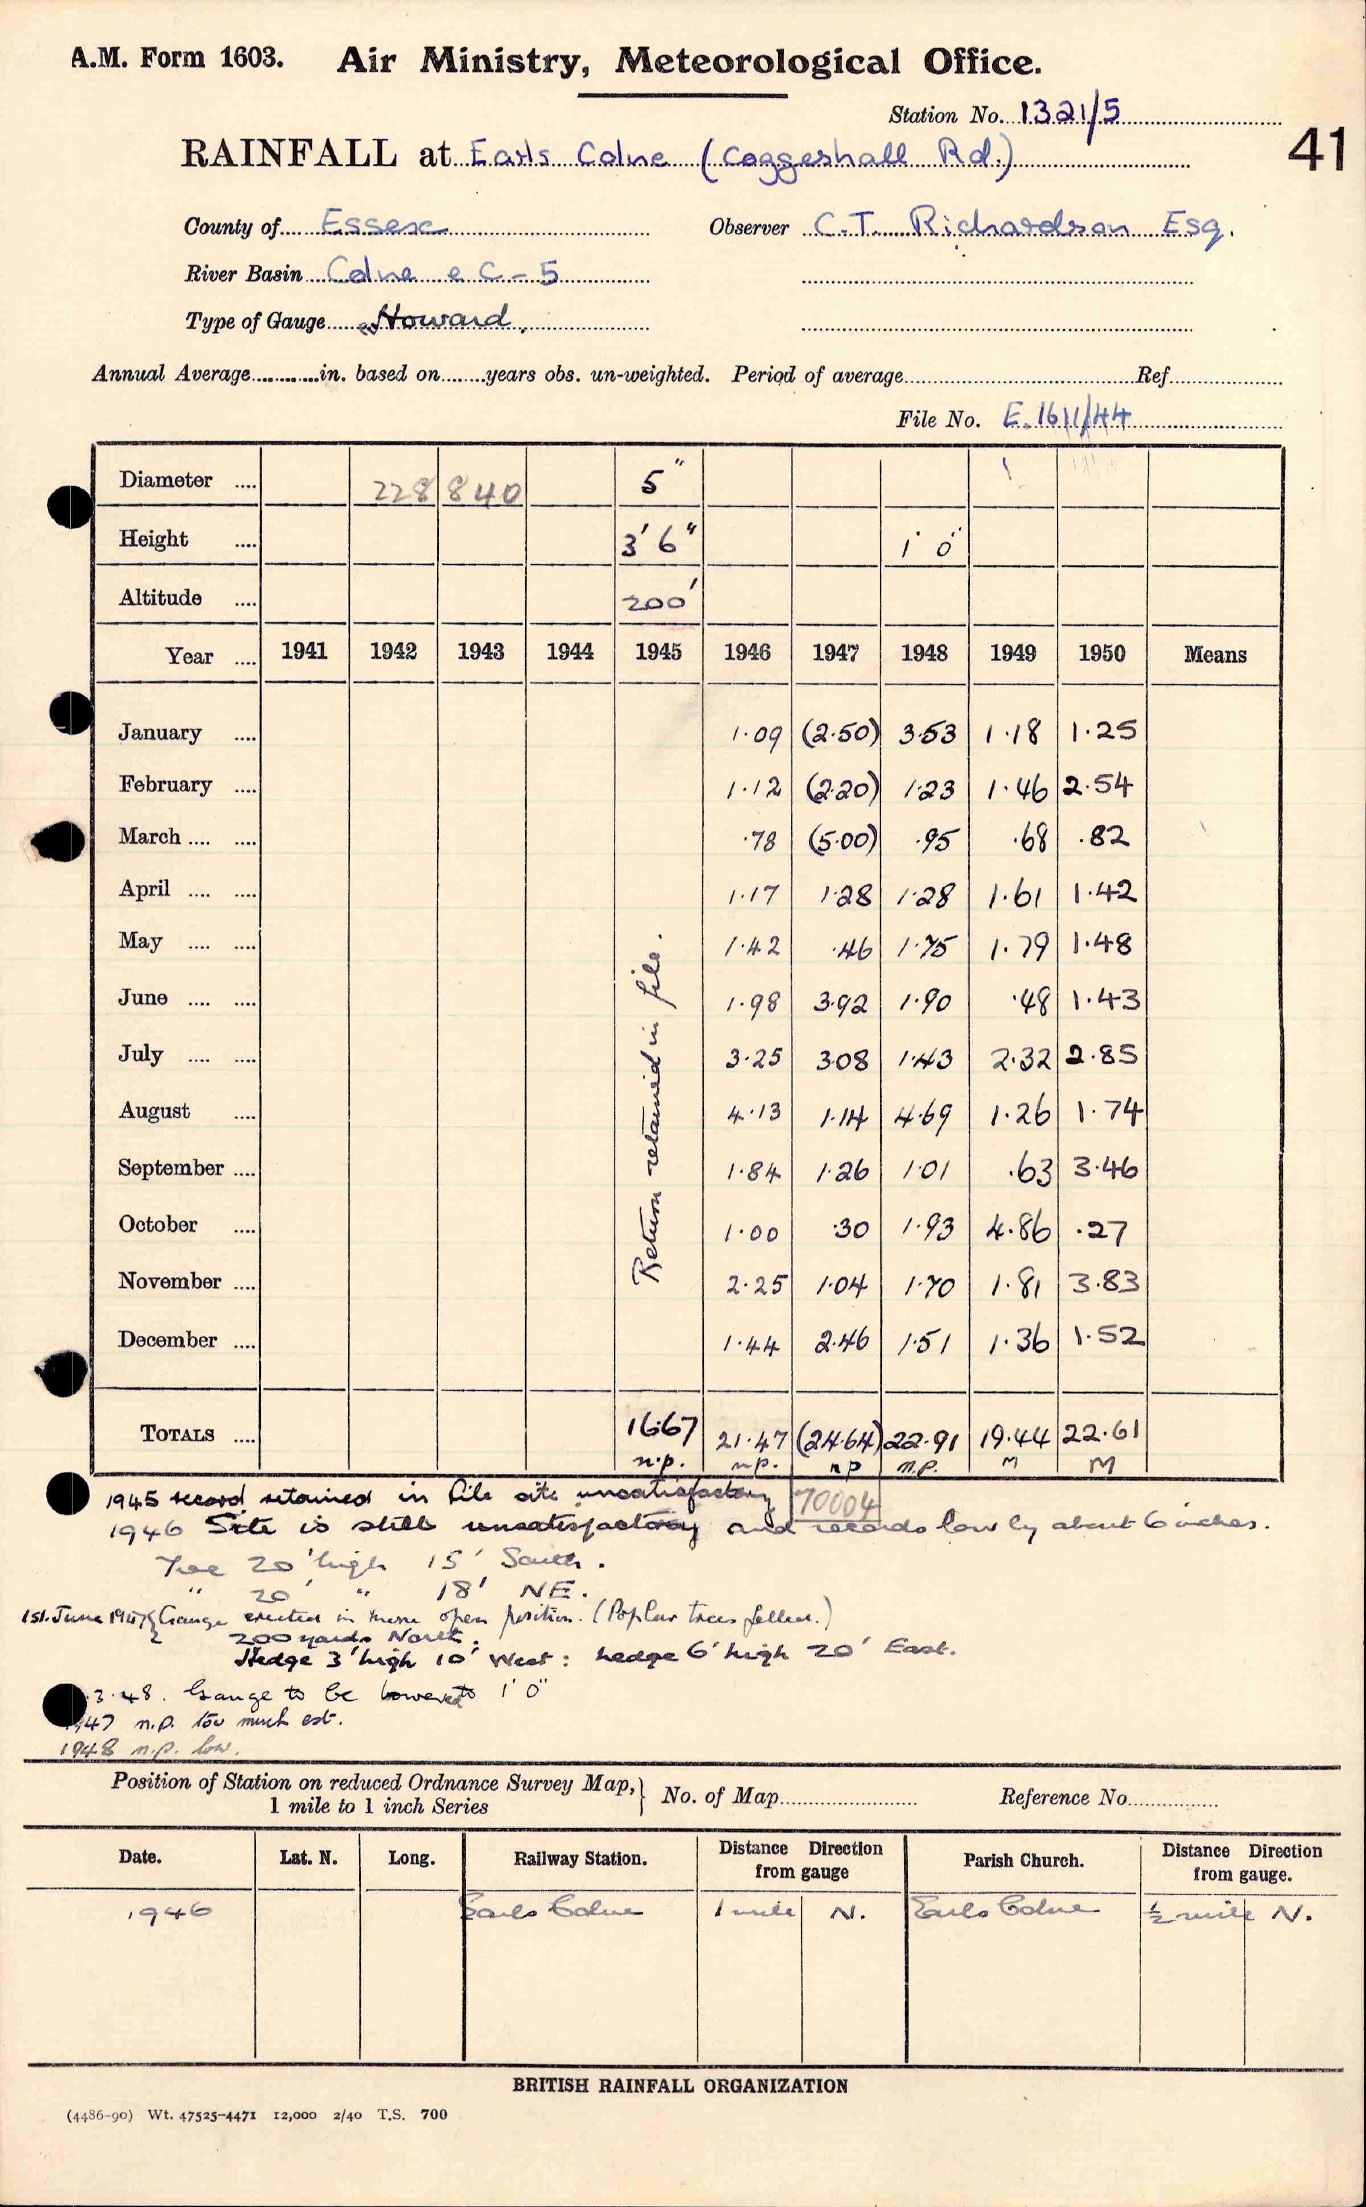 A.M. Form 1603. Air Ministry, Meteorological Office.
Station No. 1321/5
41
RAINFALL at Earls Colne (Coggeshall Rd.)
County of Essex Observer C.T. Richardson Esq.
River Basin Colne e C-5
Type of Gauge Howard.
Annual Average in. based on years obs. un-weighted. Period of average Ref
File No. E.1611/44
Diameter 228 840 5"
Height 3' 6" 1' 0"
Altitude 200'
Year 1941 1942 1943 1944 1945 1946 1947 1948 1949 1950 Means
Return retained in file.
January 1.09 (2.50) 3.53 1.18 1.25
February 1.12 (2.20) 1.23 1.46 2.54
March .78 (5.00) .95 .68 .82
April 1.17 1.28 1.28 1.61 1.42
May 1.42 .46 1.75 1.79 1.48
June 1.98 3.92 1.90 .48 1.43
July 3.25 3.08 1.43 2.32 2.85
August 4.13 1.14 4.69 1.26 1.74
September 1.84 1.26 1.01 .63 3.46
October 1.00 .30 1.93 4.86 .27
November 2.25 1.04 1.70 1.81 3.83
December 1.44 2.46 1.51 1.36 1.52
TOTALS 16.67 21.47 (24.64) 22.91 19.44 22.61
n.p. n.p. n p n.p. M M
1945 record retained in file site unsatisfactory 70004
1946 Site is still unsatisfactory and records low by about 6 inches.
Tree 20' high 15' South.
" 20' " 18' NE.
1st. June 1947 { Gauge erected in more open position. (Poplar trees fallen.)
200 yards North.
Hedge 3' high 10' West: hedge 6' high 20' East.
3.48. Gauge to be lowered to 1' 0"
1947 n.p. too much est.
1948 n.p. low.
Position of Station on reduced Ordnance Survey Map, } No. of Map Reference No.
1 mile to 1 inch Series
Date. Lat. N. Long. Railway Station. Distance from gauge Direction Parish Church. Distance from gauge. Direction
1946 Earls Colne 1 mile N. Earls Colne ½ mile N.
BRITISH RAINFALL ORGANIZATION
(4486-90) Wt. 47525-4471 12,000 2/40 T.S. 700